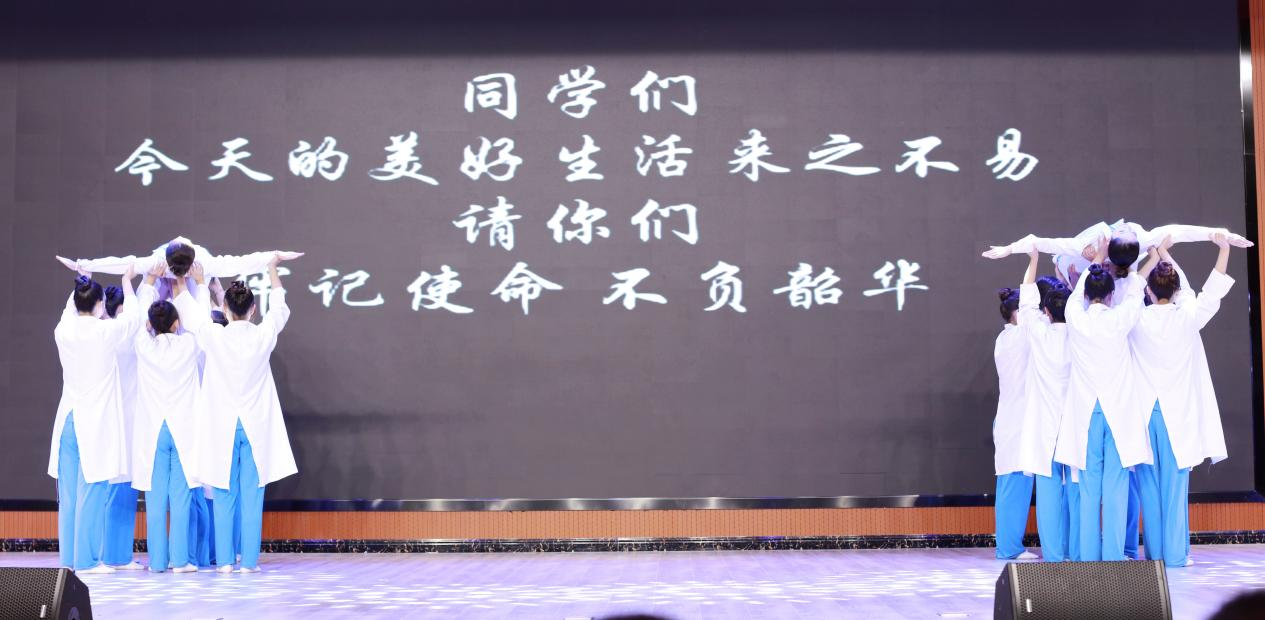 同学们
今天的美好生活来之不易
请你们
牢记使命 不负韶华